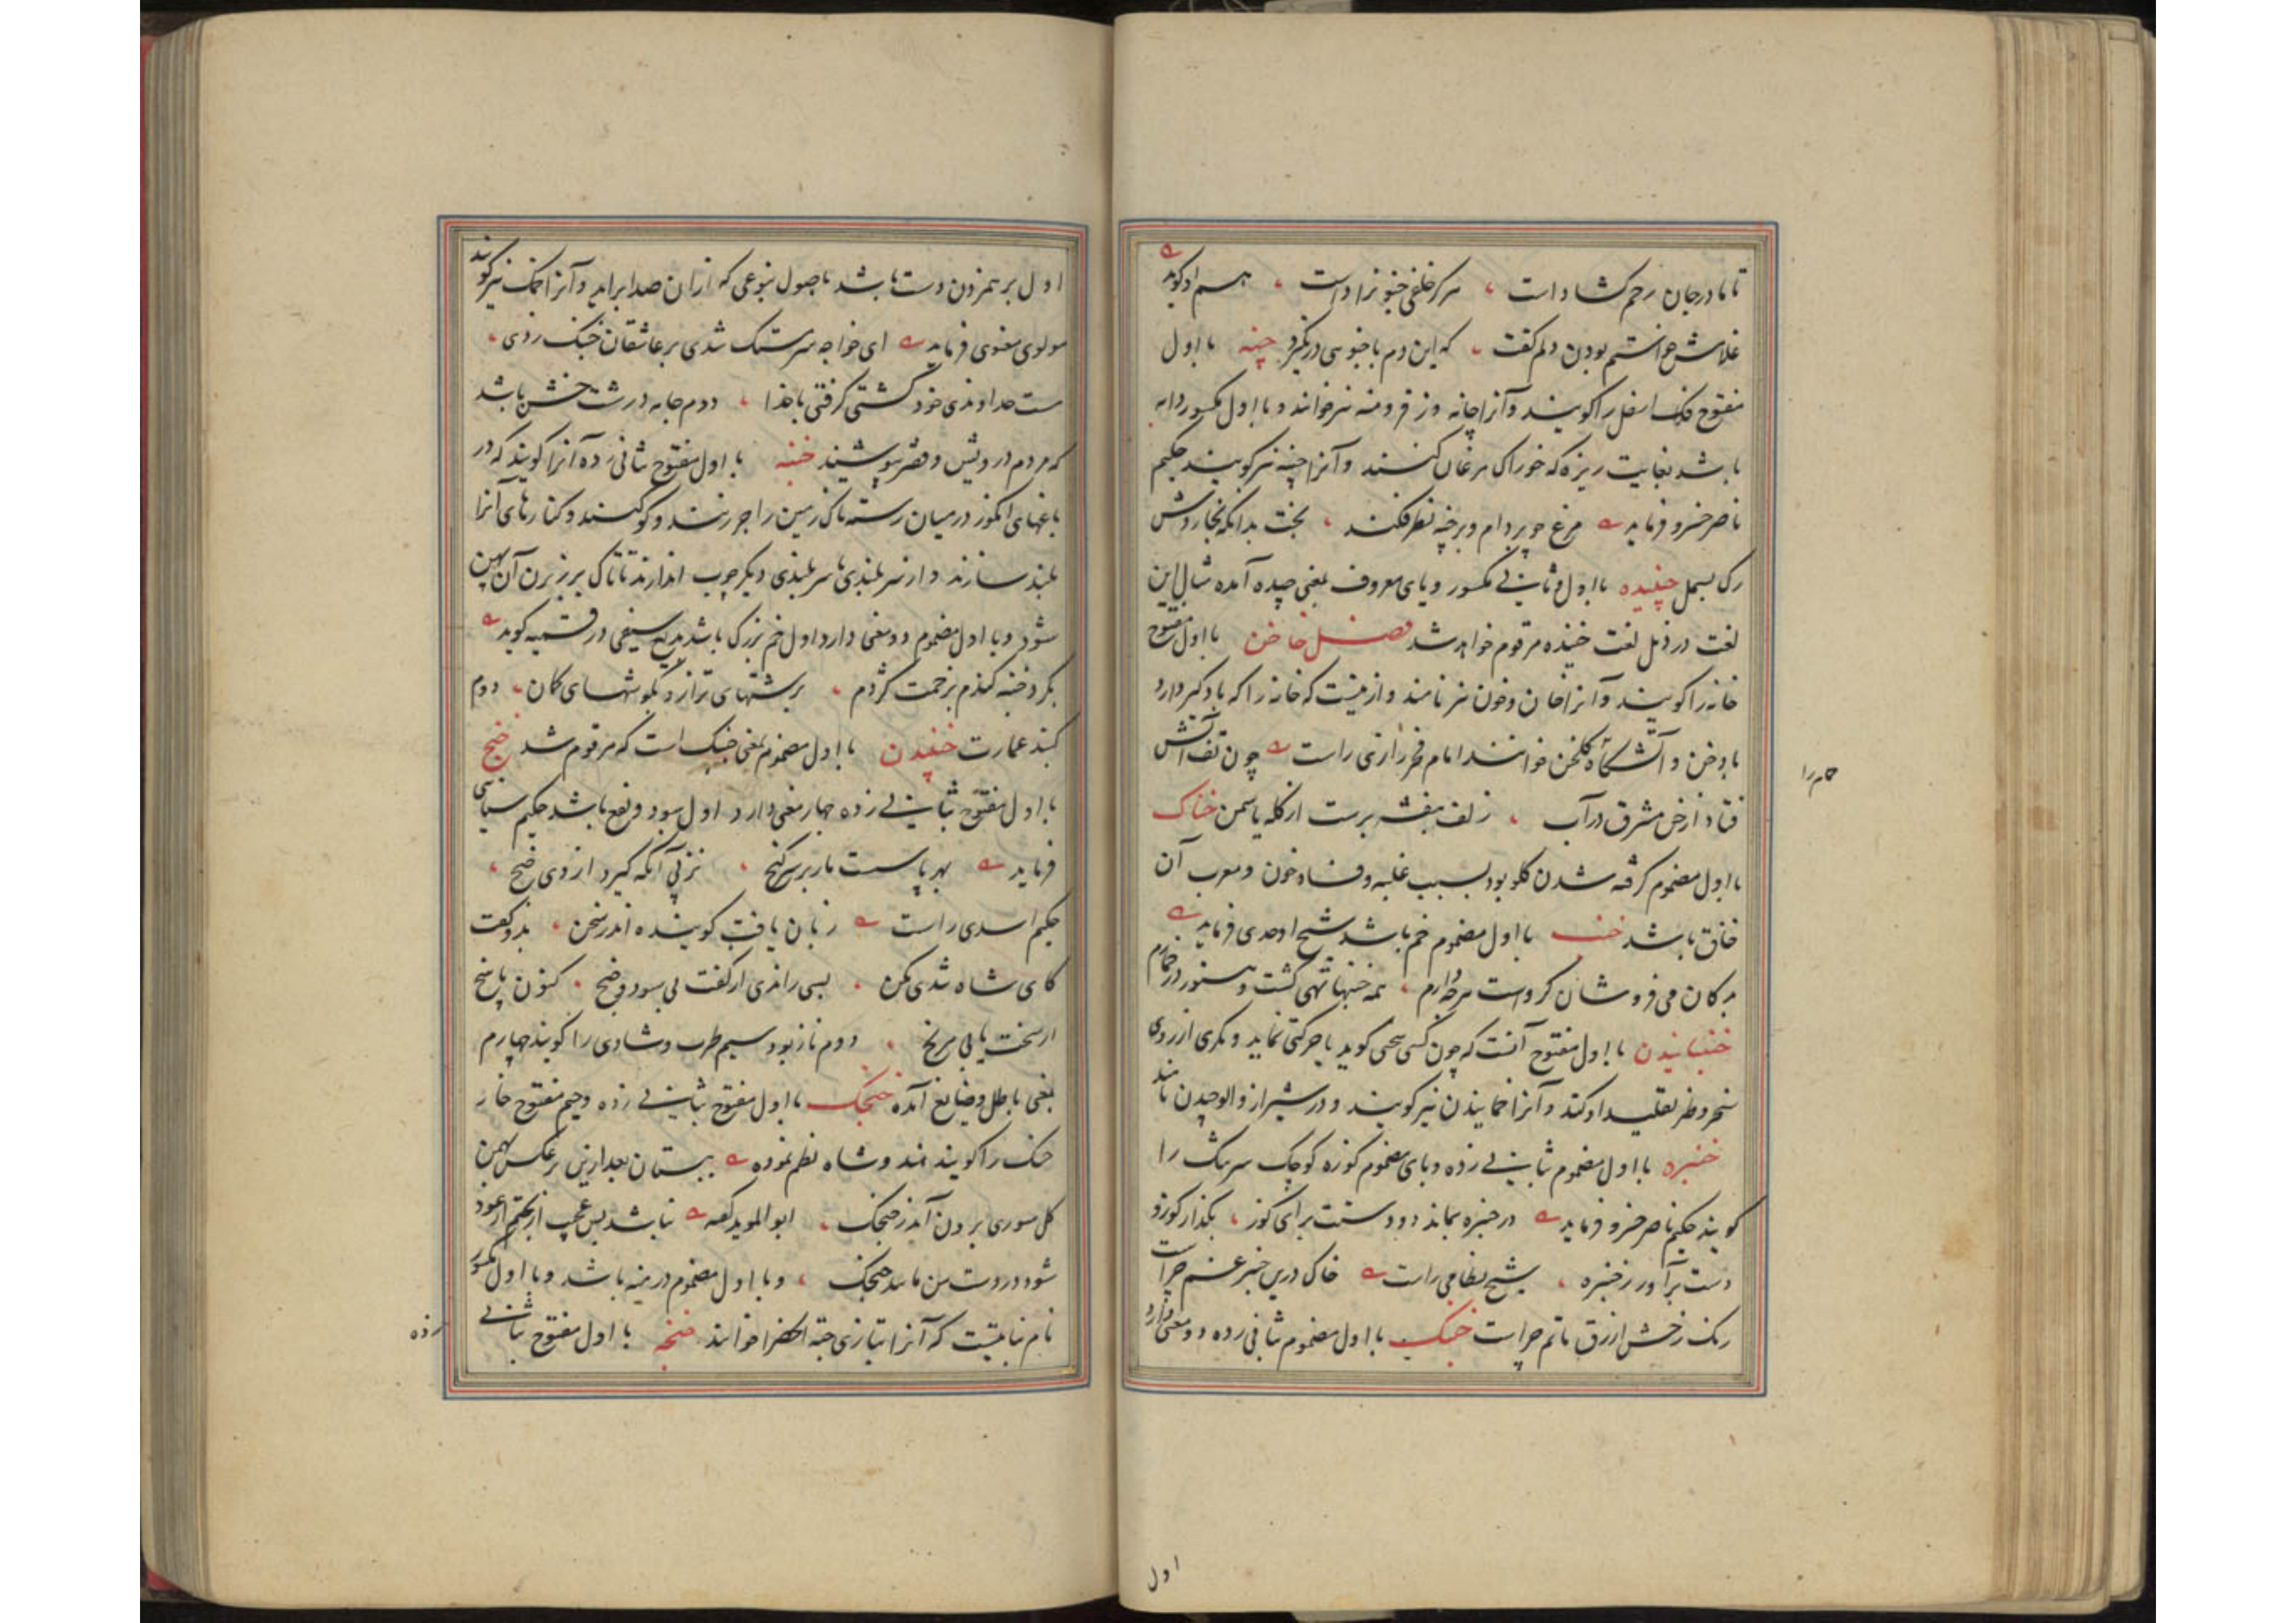 تا مادر جان رحم کشاد است ، هرگز خلفی چنو نزاد است ، هم او گوید
غلامش خواستم بودن دلم گفت ، که این دم با چنوسی در نگیرد چنه با اول
مفتوح فک اسفل را گویند و آنرا چانه و زفر و منه نیز خوانند و با اول مکسور دانه
باشد بغایت ریزه که خوراک مرغان کنند و آنرا چینه نیز گویند حکیم
ناصر خسرو فرماید مرغ چو بر دام و بر چنه نظر فکند ، بخت بدانکه بخاردش
رک بسمل چنیده با اول و ثانی مکسور و یای معروف بمعنی چیده آمده مثال این
لغت در ذیل لغت خنیده مرقوم خواهد شد فصل خا خن با اول مفتوح
خانه را گویند و آنرا خان و خون نیز نامند و ازینست که خانه را که بادگیر دارد
بادخن و آتشگاه گلخن خوانند امام فخر رازی راست چون تف آتش
فتاد از خن مشرق در آب ، زلف بنفشه برست از کله یاسمن خناک
با اول مضموم گرفته شدن گلو بود بسبب غلبه و فساد خون و معرب آن
خناق باشد خنب با اول مضموم خم باشد شیخ اوحدی فرماید
بدکان می فروشان گرو است هرچه دارم ، همه خنبها تهی گشت و هنوز در خمارم
خنبانیدن با اول مفتوح آنست که چون کسی سخن گوید یا حرکتی نماید دیگری از روی
سخر و طنز تقلید او کند و آنرا خمانیدن نیز گویند و در شیراز والوچیدن نامند
خنبره با اول مضموم ثانی زده و بای مضموم کوزه کوچک سر تنگ را
گویند حکیم ناصر خسرو فرماید در خنبره بماند دو دستت برای گوز ، بگذار گوز و
دست برآور ز خنبره ، شیخ نظامی راست خاک درین خنبره غم چراست
رنگ رخش ازرق ماتم چراست خنبک با اول مضموم ثانی زده دو معنی دارد
حمام را
اول
اول بر هم زدن دست باشد باصول بنوعی که ازان صدا براید و آنرا خمک نیز گویند
مولوی معنوی فرماید ای خواجه سرمستک شدی بر عاشقان خنبک زدی ،
مست خداوندی خود کشتی گرفتی با خدا ، دوم جامه درشت خشن باشد
که مردم درویش و فقیر پوشند خنبه با اول مفتوح ثانی زده آنرا گویند که در
باغهای انگور در میان رسته تاک زمین را جر زنند و گو کنند و کنارهای آنرا
بلند سازند و از سر بلندی تا سر بلندی دیگر چوب اندازند تا تاک بر زبرن آن پهن
شود و با اول مضموم دو معنی دارد اول خم بزرگ باشد سیفی در قسمیه گوید
بگرد خنبه گندم بزخمت گزدم ، برشتهای ترازو بگوشهای کمان ، دوم
گنبد عمارت خنبیدن با اول مضموم بمعنی خنبک است که مرقوم شد خنج
با اول مفتوح بثانی زده چهار معنی دارد اول سود و نفع باشد حکیم سنایی
فرماید بهر پاسست مار بر سر گنج ، نز پی آنکه گیرد از وی خنج ،
حکیم اسدی راست زبان یافت گوینده اندر سخن ، بدو گفت
کای شاه تندی مکن ، بسی راندی از گفت بی سود و خنج ، کنون پاسخ
ار سخت یابی مرنج ، دوم ناز بود سیم طرب و شادی را گویند چهارم
بمعنی باطل و ضایع آمده خنجک با اول مفتوح بثانی زده و جیم مفتوح خار
خسک را گویند و شاه نظم نموده ببستان بعد ازین بر عکس بهمن
گل سوری برون آید ز خنجک ، ابو الموید گفته نباشد بس عجب از بختم ار عود
شود در دست من مانند خنجک ، و با اول مضموم درمنه باشد و با اول مکسور
نام نباتیست که آنرا بتازی حبة الخضرا خوانند خنجه با اول مفتوح بثانی
زده